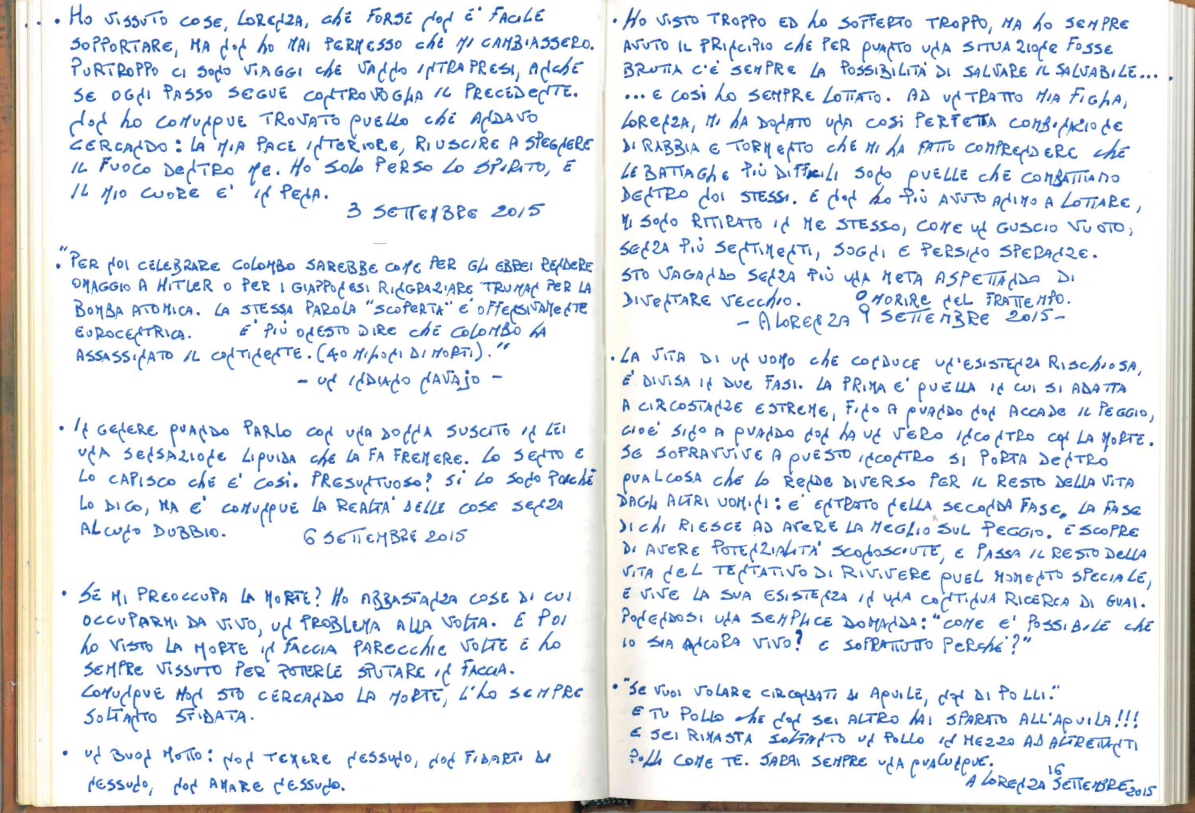 • HO VISSUTO COSE, LORENZA, CHE FORSE NON E' FACILE
SOPPORTARE, MA NON HO MAI PERMESSO CHE MI CAMBIASSERO.
PURTROPPO CI SONO VIAGGI CHE VANNO INTRAPRESI, ANCHE
SE OGNI PASSO SEGUE CONTROVOGLIA IL PRECEDENTE.
NON HO COMUNQUE TROVATO QUELLO CHE ANDAVO
CERCANDO: LA MIA PACE INTERIORE, RIUSCIRE A SPEGNERE
IL FUOCO DENTRO ME. HO SOLO PERSO LO SPIRITO, E
IL MIO CUORE E' IN PENA.
3 SETTEMBRE 2015
• "PER NOI CELEBRARE COLOMBO SAREBBE COME PER GLI EBREI RENDERE
OMAGGIO A HITLER O PER I GIAPPONESI RINGRAZIARE TRUMAN PER LA
BOMBA ATOMICA. LA STESSA PAROLA "SCOPERTA" E' OFFENSIVAMENTE
EUROCENTRICA. E' PIÙ ONESTO DIRE CHE COLOMBO HA
ASSASSINATO IL CONTINENTE. (40 MILIONI DI MORTI)."
- UN INDIANO NAVAJO -
• IN GENERE QUANDO PARLO CON UNA DONNA SUSCITO IN LEI
UNA SENSAZIONE LIQUIDA CHE LA FA FREMERE. LO SENTO E
LO CAPISCO CHE E' COSÌ. PRESUNTUOSO? SÌ LO SONO POICHÈ
LO DICO, MA E' COMUNQUE LA REALTÀ DELLE COSE SENZA
ALCUNO DUBBIO.
6 SETTEMBRE 2015
• SE MI PREOCCUPA LA MORTE? HO ABBASTANZA COSE DI CUI
OCCUPARMI DA VIVO, UN PROBLEMA ALLA VOLTA. E POI
HO VISTO LA MORTE IN FACCIA PARECCHIE VOLTE E HO
SEMPRE VISSUTO PER POTERLE SPUTARE IN FACCIA.
COMUNQUE NON STO CERCANDO LA MORTE, L'HO SEMPRE
SOLTANTO SFIDATA.
• UN BUON MOTTO: NON TEMERE NESSUNO, NON FIDARTI DI
NESSUNO, NON AMARE NESSUNO.
• HO VISTO TROPPO ED HO SOFFERTO TROPPO, MA HO SEMPRE
AVUTO IL PRINCIPIO CHE PER QUANTO UNA SITUAZIONE FOSSE
BRUTTA C'È SEMPRE LA POSSIBILITÀ DI SALVARE IL SALVABILE...
... E COSÌ HO SEMPRE LOTTATO. AD UN TRATTO MIA FIGLIA,
LORENZA, MI HA DONATO UNA COSÌ PERFETTA COMBINAZIONE
DI RABBIA E TORMENTO CHE MI HA FATTO COMPRENDERE CHE
LE BATTAGLIE PIÙ DIFFICILI SONO QUELLE CHE COMBATTIAMO
DENTRO NOI STESSI. E NON HO PIÙ AVUTO ANIMO A LOTTARE,
MI SONO RITIRATO IN ME STESSO, COME UN GUSCIO VUOTO,
SENZA PIÙ SENTIMENTI, SOGNI E PERSINO SPERANZE.
STO VAGANDO SENZA PIÙ UNA META ASPETTANDO DI
DIVENTARE VECCHIO. O MORIRE NEL FRATTEMPO.
- A LORENZA 9 SETTEMBRE 2015 -
• LA VITA DI UN UOMO CHE CONDUCE UN'ESISTENZA RISCHIOSA,
E' DIVISA IN DUE FASI. LA PRIMA E' QUELLA IN CUI SI ADATTA
A CIRCOSTANZE ESTREME, FINO A QUANDO NON ACCADE IL PEGGIO,
CIOÈ SINO A QUANDO NON HA UN VERO INCONTRO CON LA MORTE.
SE SOPRAVVIVE A QUESTO INCONTRO SI PORTA DENTRO
QUALCOSA CHE LO RENDE DIVERSO PER IL RESTO DELLA VITA
DAGLI ALTRI UOMINI: E' ENTRATO NELLA SECONDA FASE. LA FASE
DI CHI RIESCE AD AVERE LA MEGLIO SUL PEGGIO. E SCOPRE
DI AVERE POTENZIALITÀ SCONOSCIUTE, E PASSA IL RESTO DELLA
VITA NEL TENTATIVO DI RIVIVERE QUEL MOMENTO SPECIALE,
E VIVE LA SUA ESISTENZA IN UNA CONTINUA RICERCA DI GUAI.
PONENDOSI UNA SEMPLICE DOMANDA: "COME E' POSSIBILE CHE
IO SIA ANCORA VIVO? E SOPRATTUTTO PERCHÉ?"
• "SE VUOI VOLARE CIRCONDATI DI AQUILE, NON DI POLLI."
E TU POLLO CHE NON SEI ALTRO HAI SPARATO ALL'AQUILA!!!
E SEI RIMASTA SOLTANTO UN POLLO IN MEZZO AD ALTRETTANTI
POLLI COME TE. SARAI SEMPRE UNA QUALUNQUE.
A LORENZA 16 SETTEMBRE 2015